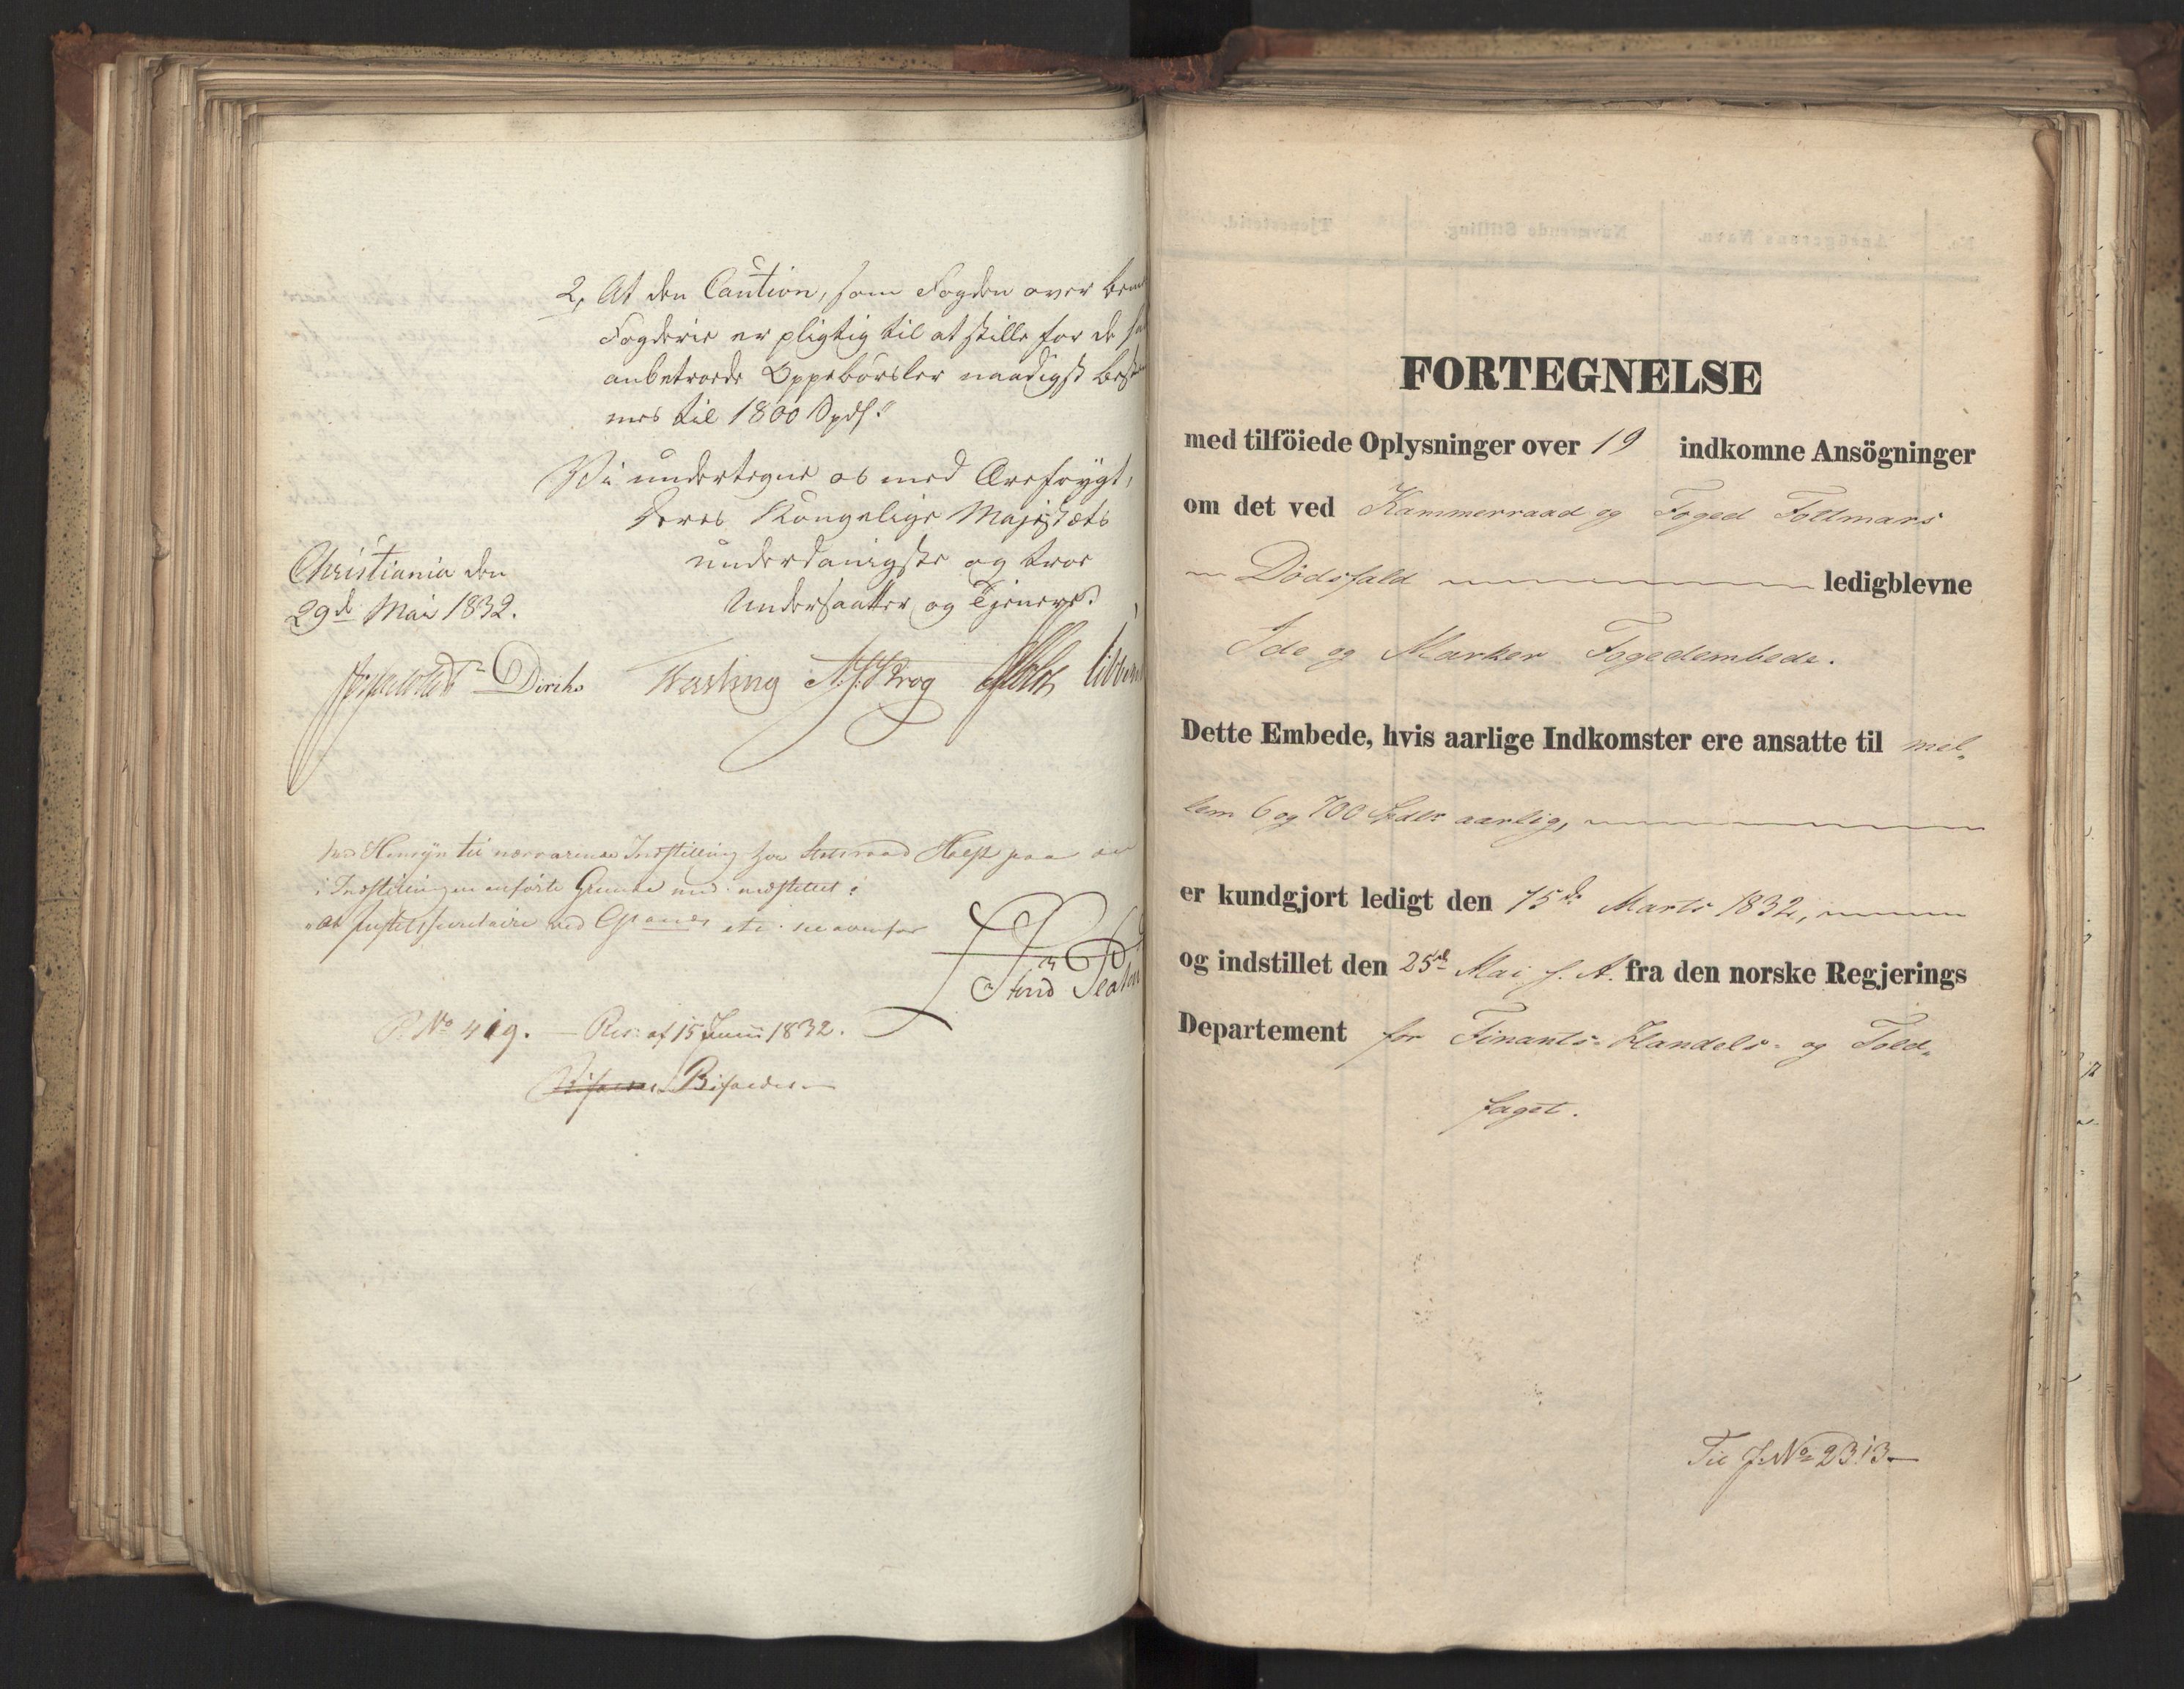 2, At den Caution, som Fogden over bem
Fogderie er pligtig til at stille for de
anbetroede Oppebörsler naadigst beste
mes til 1800 Spd.
Vi undertegne os med Ærefrygt,
Deres Kongelige Majestæts
underdanigste og troe
Undersaatter og Tjenere.
Christiania den
29de Mai 1832.
Diriks Fasting A. J. Krog Holst
Hensyn til nærværende Indstilling har Statsraad Holst paa
i Indstillingen anförte Grunde
at
P. No 419. – Res: af 15 Juni 1832.
Bifaldes
FORTEGNELSE
med tilföiede Oplysninger over 19 indkomne Ansögninger
om det ved Kammerraad og Foged Follmars
Dödsfald ledigblevne
Ide og Marker Fogedembede.
Dette Embede, hvis aarlige Indkomster ere ansatte til mel-
lem 6 og 700 Spdlr aarlig,
er kundgjort ledigt den 15de Marts 1832,
og indstillet den 25de Mai s. A. fra den norske Regjerings
Departement for Finants- Handels- og Told-
faget.
Til J. No 2313